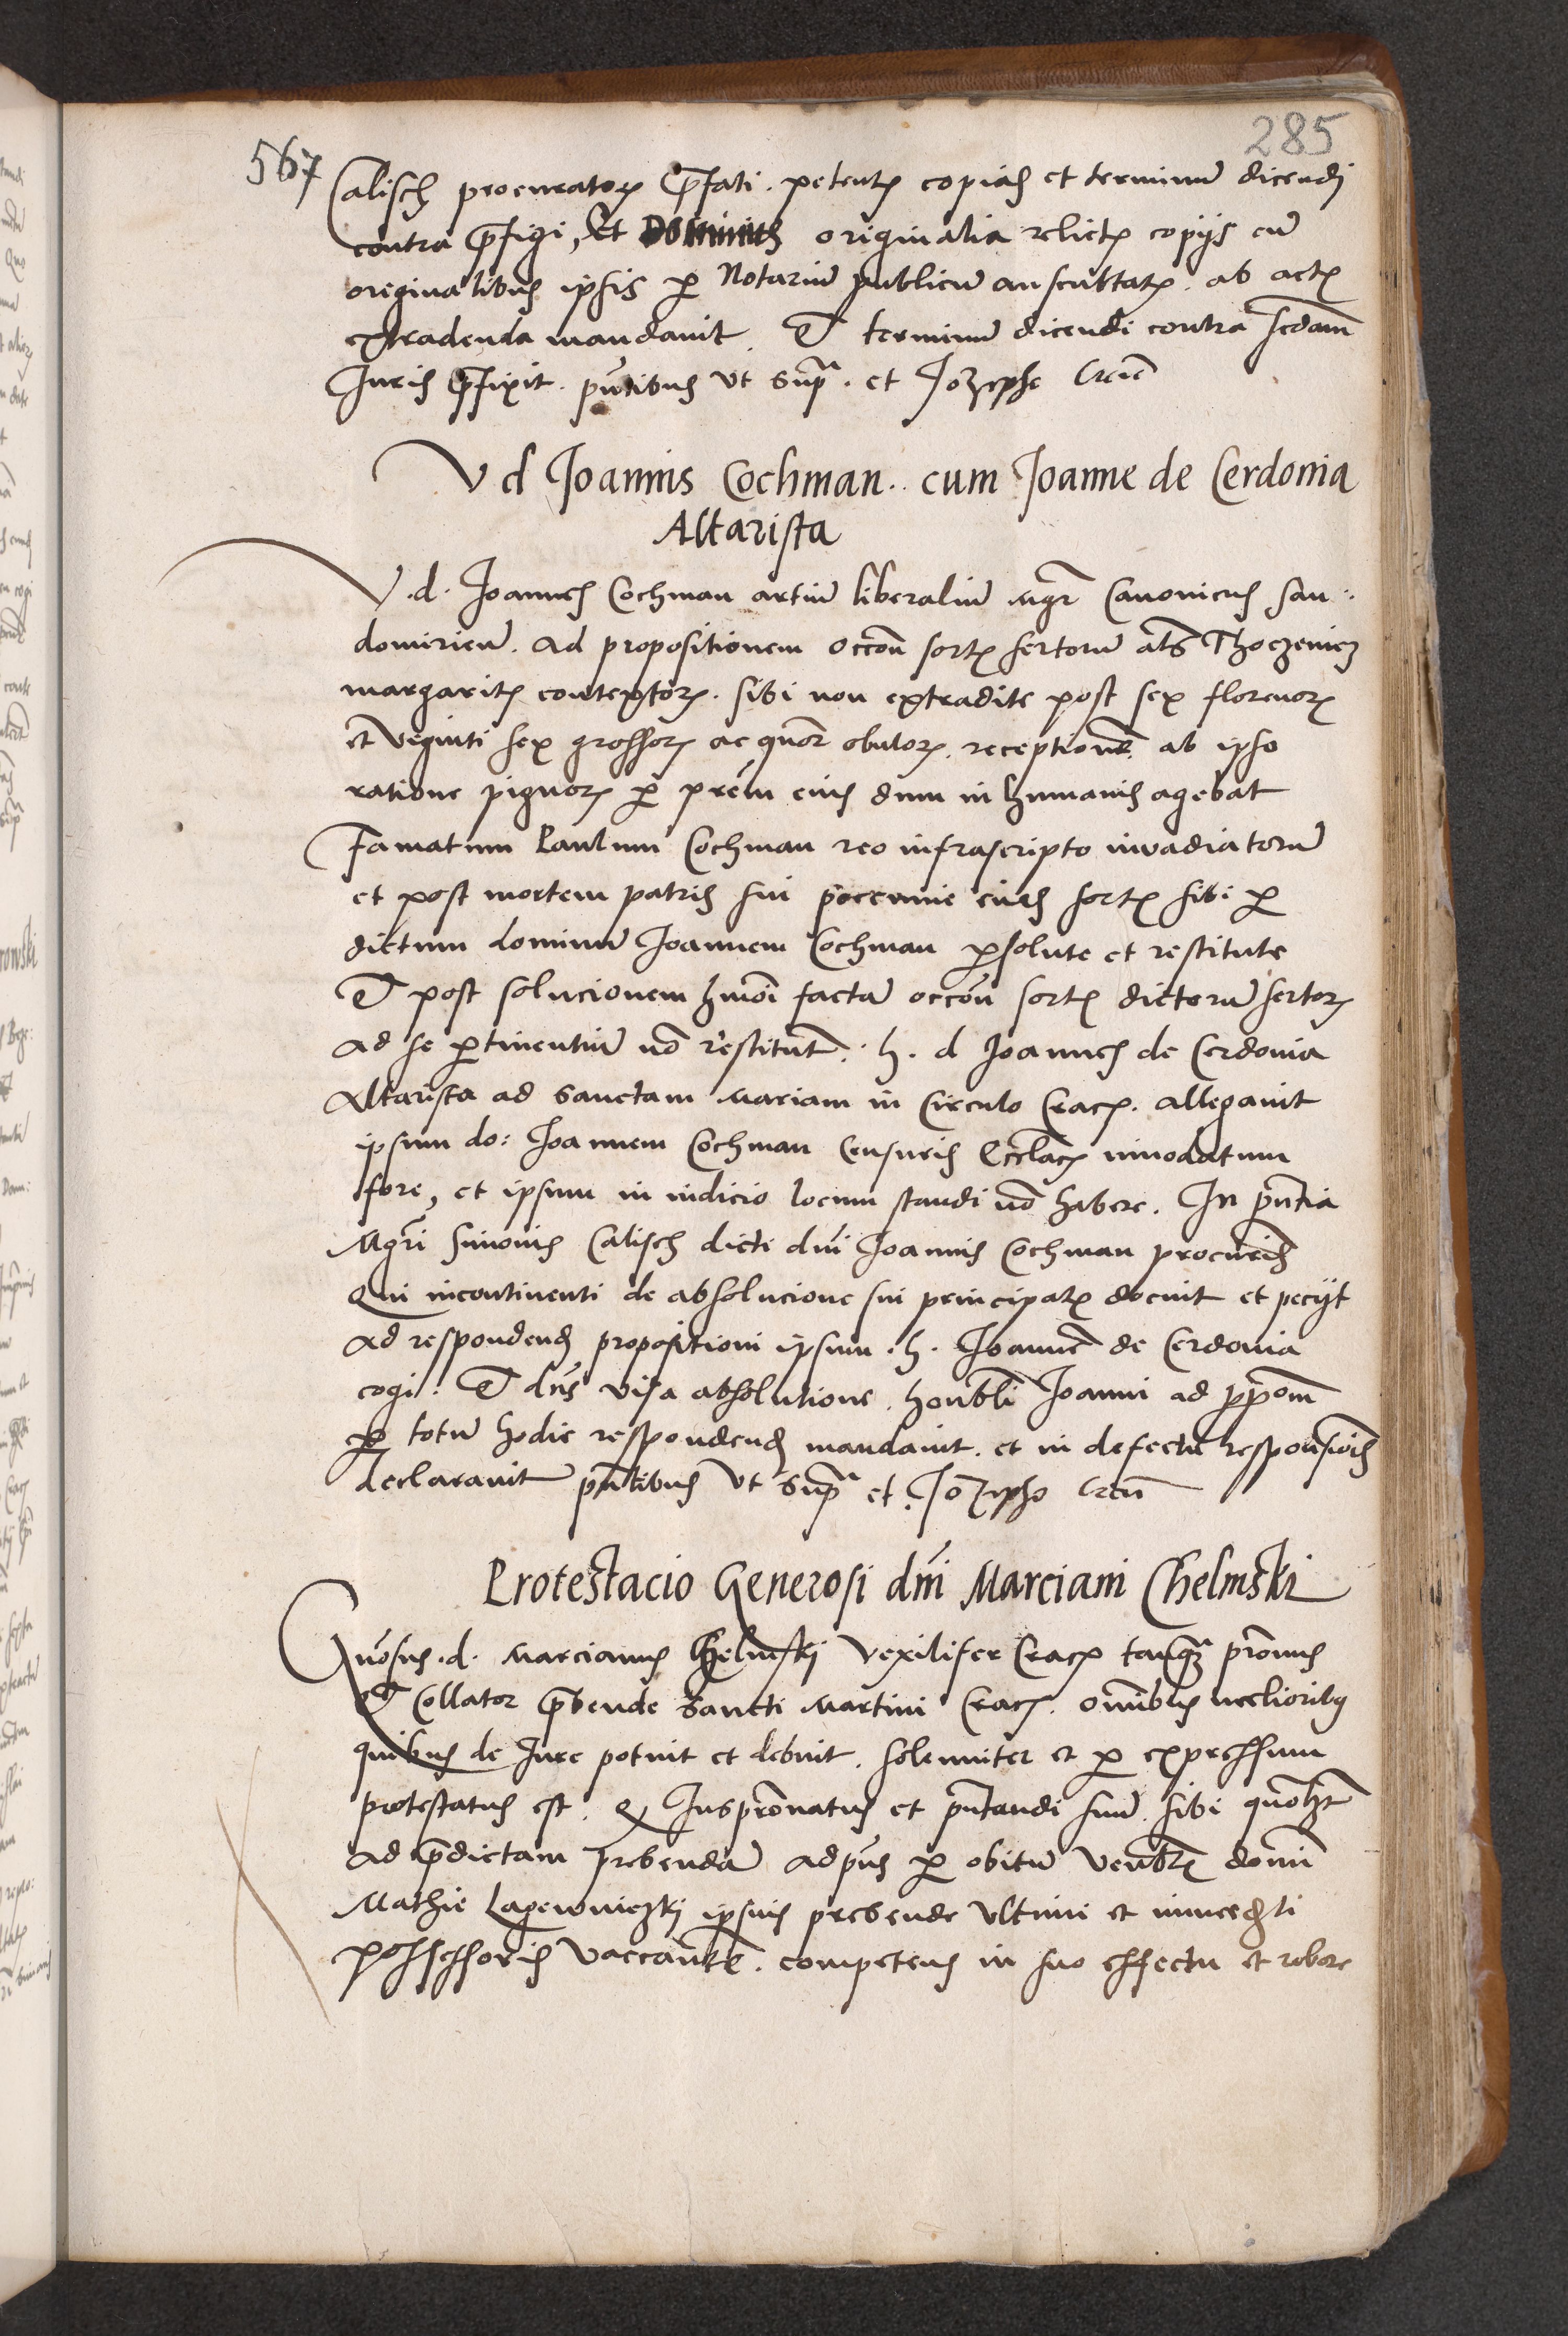 285
567
Calisch procuratoris p̄fati. petentis copias et terminū dicendi
contra p̄figi, Et Dominus originalia relictis copijs cū
originalibus ipsis ꝑ Notariū publicū auscultatis. ab actis
extradenda mandavit. Et terminū dicendi contra sc̄dam
Juris p̄fixit. pn̄tibus vt supra. et Jozepho
V d Joannis Cochman. cum Joanne de Cerdonia
Altarista
V. d. Joannes Cochman artiū liberaliū mgr̄ Canonicus San:
domirien̄. Ad propositionem occōn sortis sertorū al̄s
margaritis contextorū. sibi non extradite post sex florenorū
et viginti sex grossorū ac quor̄ obulorū. receptionē ab ipso
ratione pignorū ꝑ prēm eius dum in humanis agebat
Famatum Paulum Cochman reo infrascripto invadiatorū
et post mortem patris sui pecunie eius sortis sibi ꝑ
dictum dominū Joannem Cochman ꝑsolute et restitute
Et post solucionem hmōi factā occōn sortis dictorū sertorū
ad se ꝑtinentiū nō restitut. h. d Joannes de Cerdonia
Altarista ad Sanctam Mariam in Circulo Crac̄. allegavit
ipsum do: Joannem Cochman Censuris Eccl̄ac̄ innodatum
fore, et ipsum in iudicio locum standi nō habere. In pn̄tia
Mgrī Simonis Calisch dicti dn̄i Joannis Cochman procur̄is
Qui incontinenti de absolucione sui principalis docuit et pecijt
ad respondend̄ propositioni ipsum. h. Joannē de Cerdonia
cogi. Et dn̄s visa absolutione. honbl̄i Joanni ad ppōm
ꝑ totū hodie respondend̄ mandavit. et in defectu responsiōis
declaravit pn̄tibus vt supra et Jozepho
Protestacio Generosi dn̄i Marciani Chelmski
Gn̄osus. d. Marcianus Chelmski Vexilifer Crac̄ tanqꝫ pr̄onus
Et Collator p̄bende Sancti Martini Crac̄. omībus melioribꝫ
quibus de Jure potuit et debuit. solenniter et ꝑ expressum
protestatus est. qꝫ Juspr̄onatus et pn̄tandi suū. sibi quōlꝫt
ad p̄dictam prebendā adpn̄s ꝑ obitū venbl̄is domī
Mathie Lagiewniczkj ipsius prebende vltimi et immediati
possessoris vaccantē. competens in suo effectu et robore